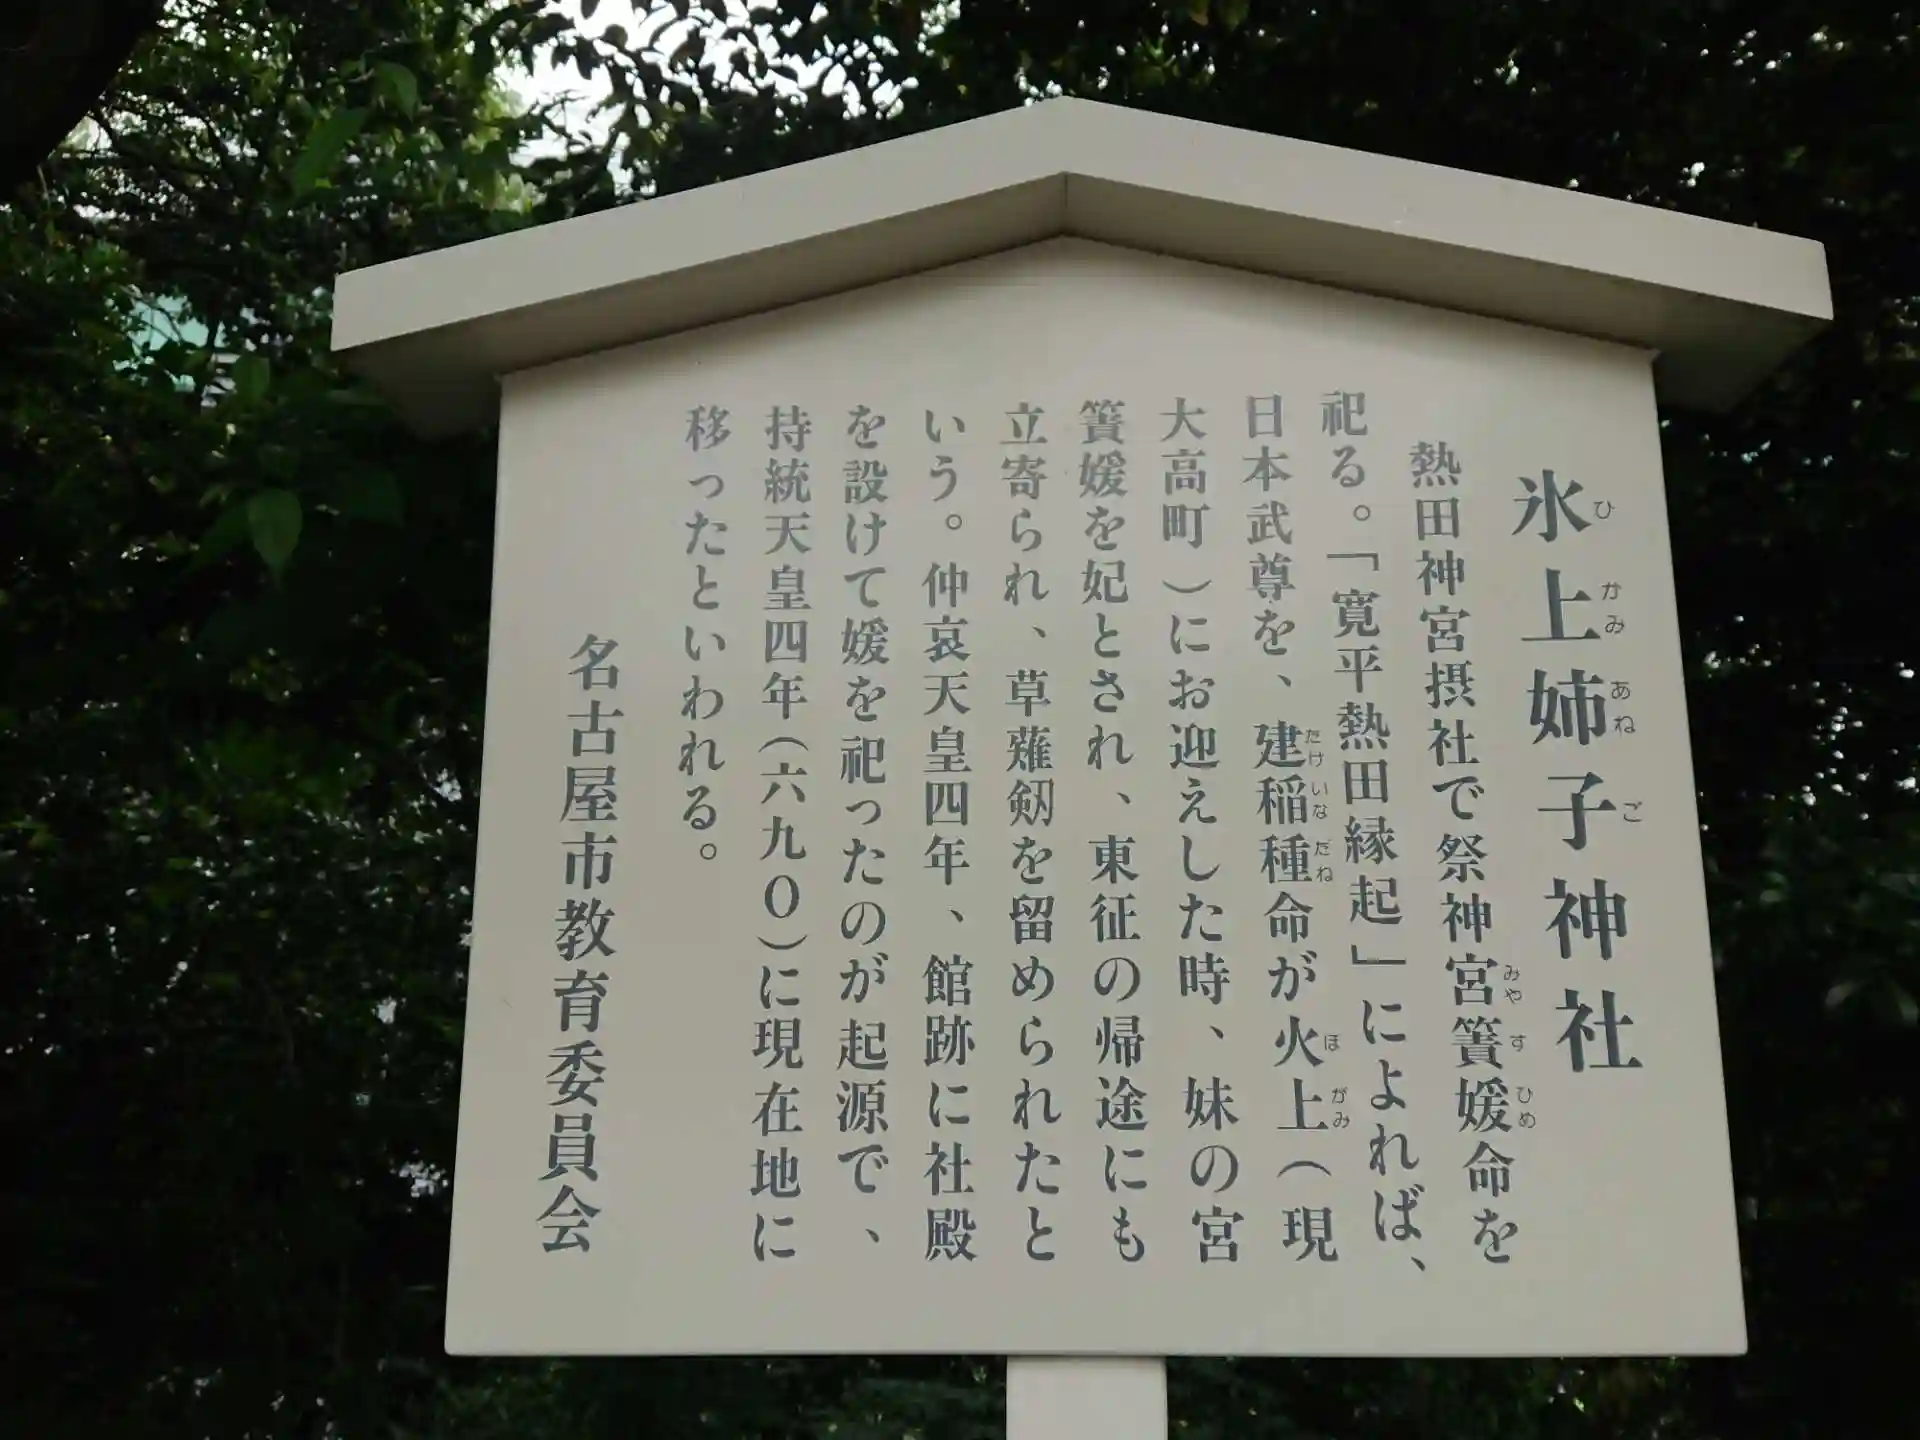 氷上姉子神社
熱田神宮摂社で祭神宮簀媛命を
祀る。「寛平熱田縁起」によれば、
日本武尊を、建稲種命が火上(現
大高町)にお迎えした時、妹の宮
簀媛を妃とされ、東征の帰途にも
立寄られ、草薙剱を留められたと
いう。仲哀天皇四年、館跡に社殿
を設けて媛を祀ったのが起源で、
持統天皇四年(六九〇)に現在地に
移ったといわれる。
名古屋市教育委員会
ひかみあねご
みやすひめ
たけいなだね
ほがみ